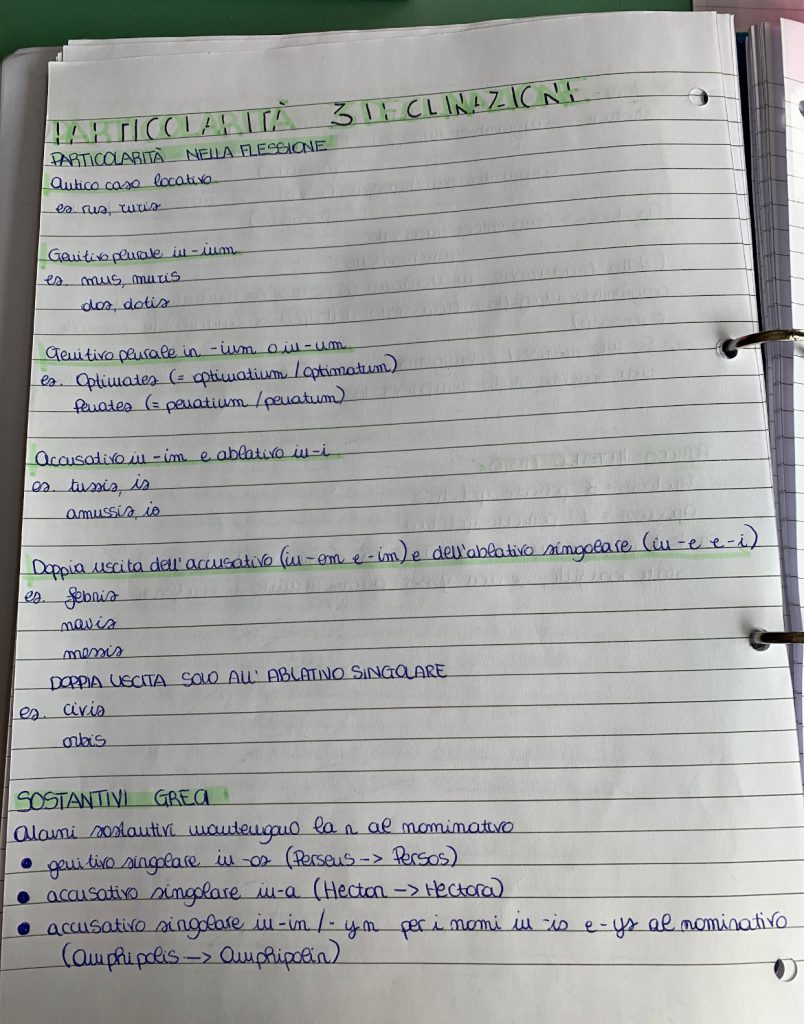 PARTICOLARITÀ 3 DECLINAZIONE
PARTICOLARITÀ NELLA FLESSIONE
Antico caso locativo
es. rus, ruris
Genitivo plurale in -ium
es. mus, muris
dos, dotis
Genitivo plurale in -ium o in -um
es. Optimates (= optimatium / optimatum)
Penates (= penatium / penatum)
Accusativo in -im e ablativo in -i
es. tussis, is
amussis, is
Doppia uscita dell'accusativo (in -em e -im) e dell'ablativo singolare (in -e e -i)
es. febris
navis
messis
DOPPIA USCITA SOLO ALL'ABLATIVO SINGOLARE
es. civis
orbis
SOSTANTIVI GRECI
Alcuni sostantivi mantengono la n al nominativo
• genitivo singolare in -os (Perseus -> Persos)
• accusativo singolare in -a (Hector -> Hectora)
• accusativo singolare in -in / -yn per i nomi in -is e -ys al nominativo
(Amphipolis -> Amphipolin)